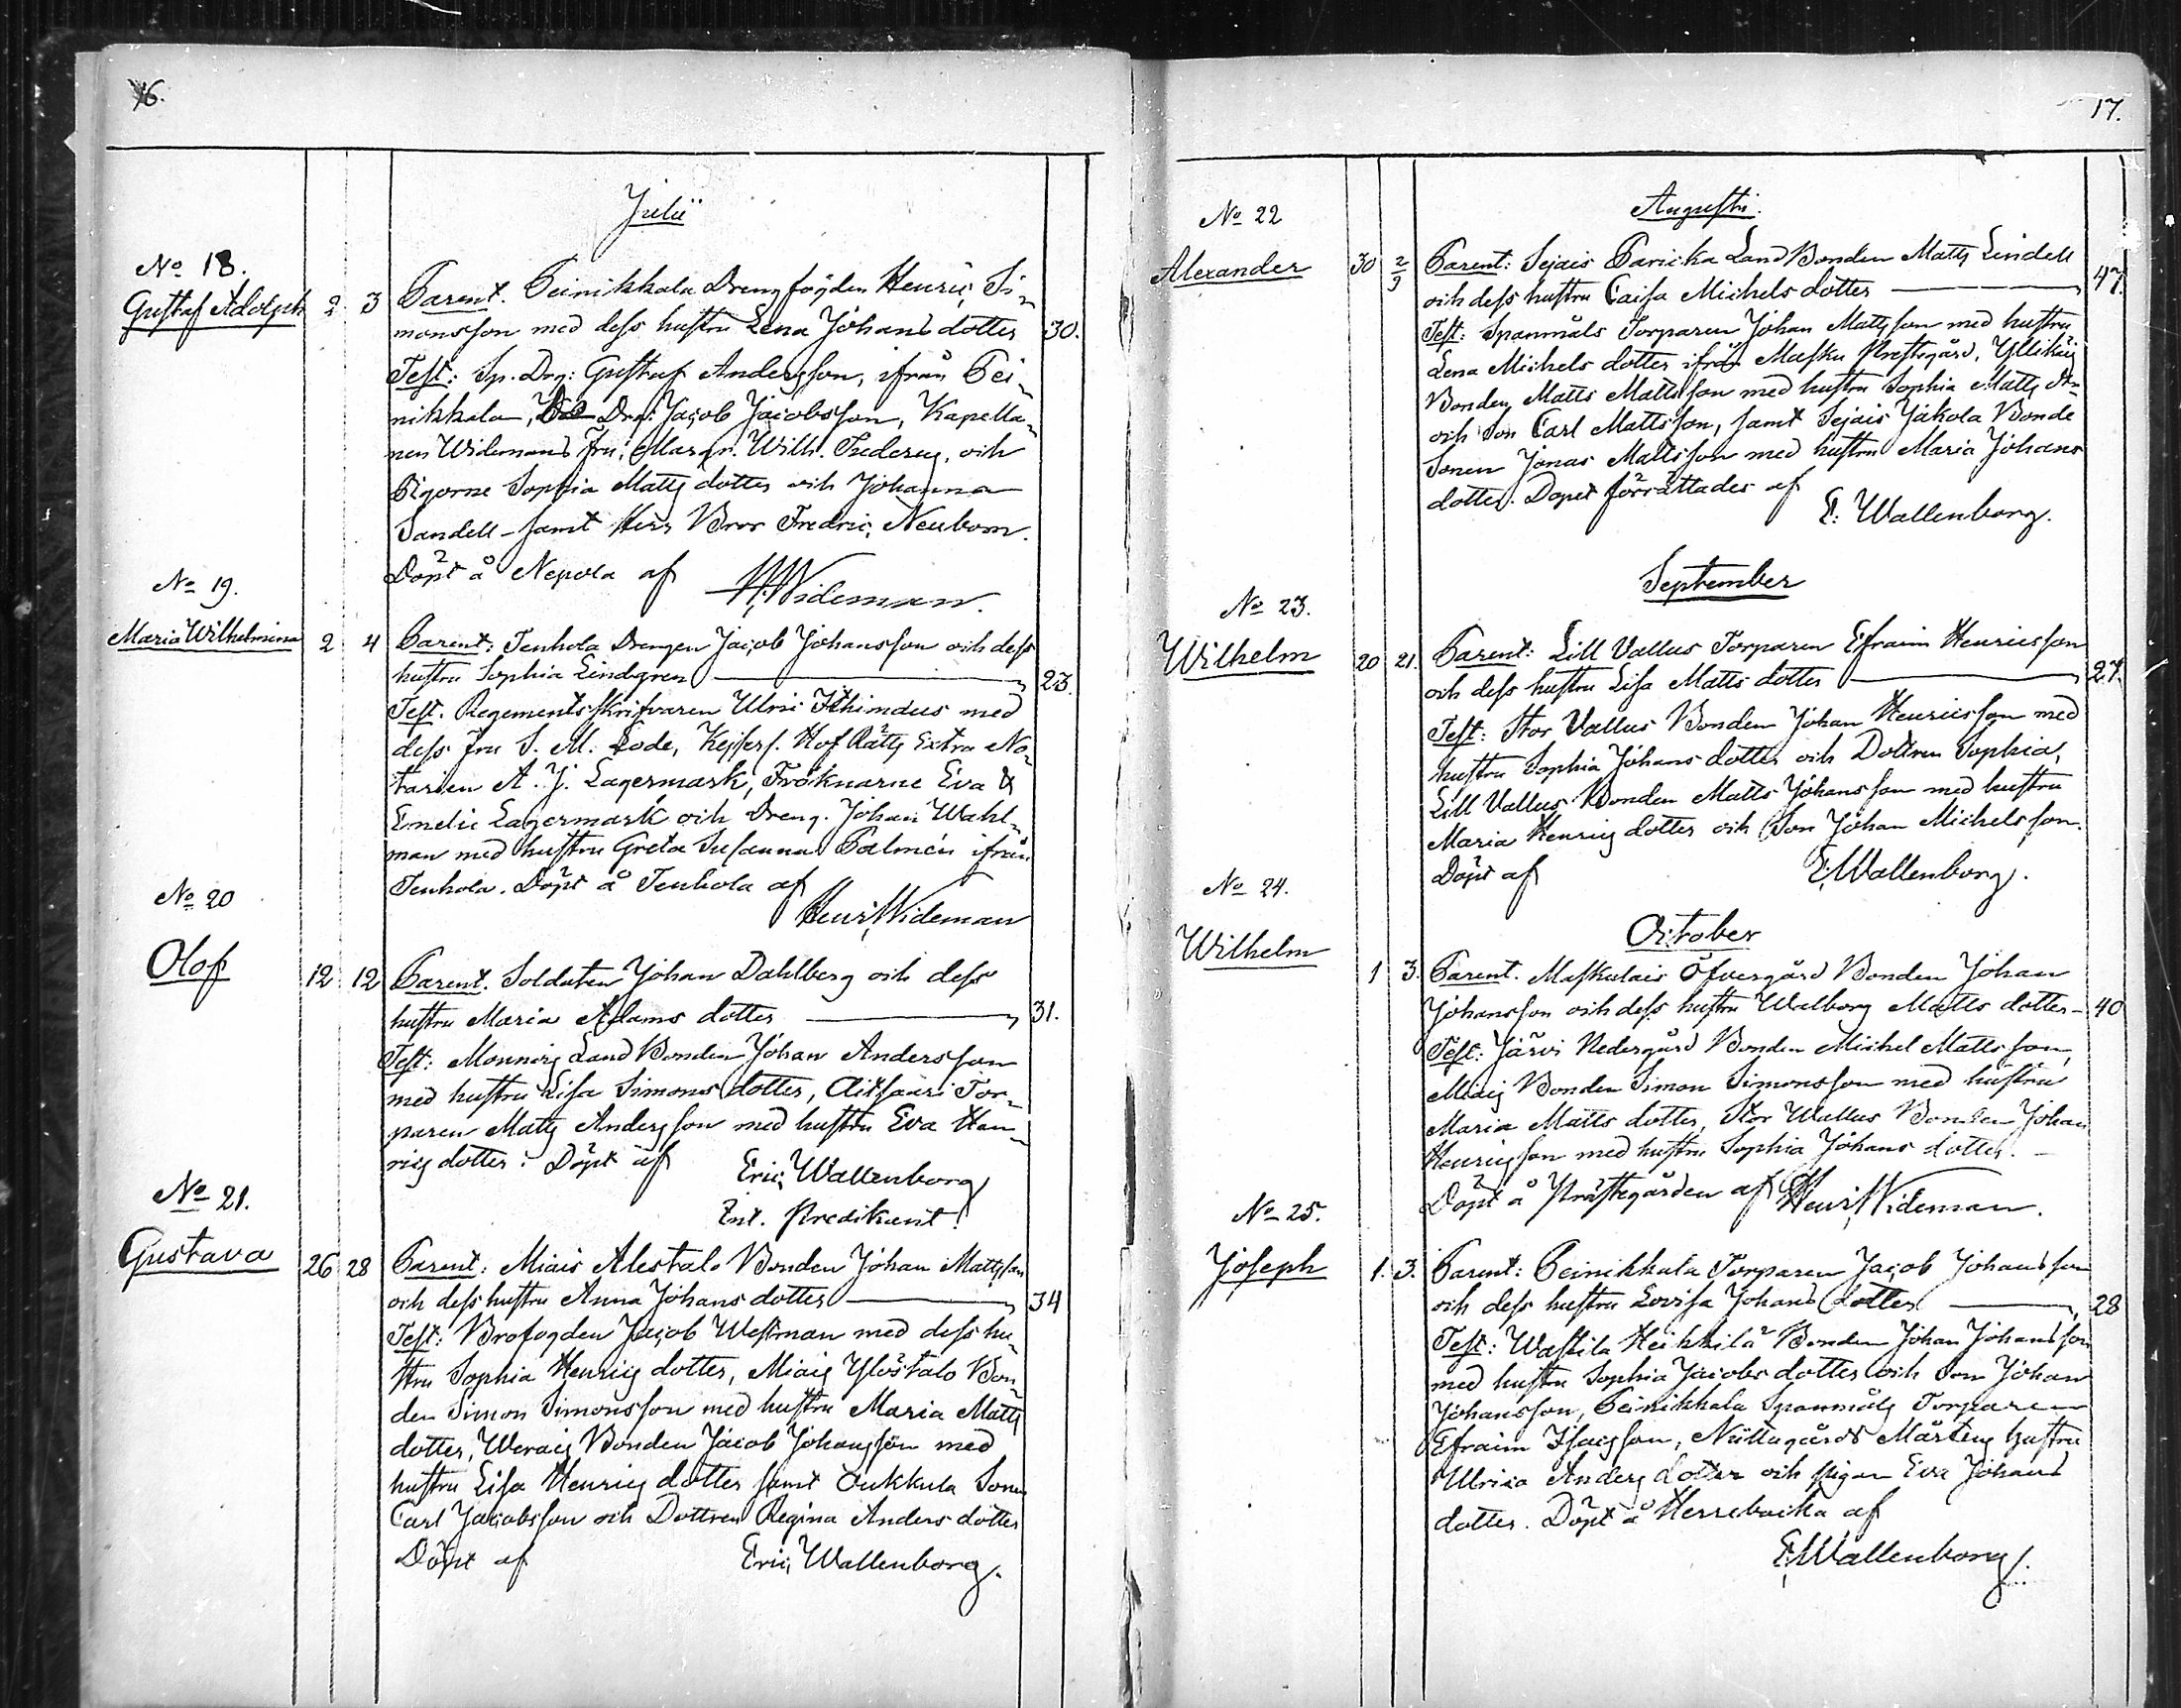 16.
Julii
No 18.
Gustaf Adolph 2. 3 Parent. Peinikkala Drengfogden Henric Si-
monsson med dess hustru Lena Johans dotter 30.
Test: Sp. Drg: Gustaf Andersson, ifrån Pei-
nikkala, Drg: Jacob Jacobsson, Kapella-
nen Widemans Fru: Margr. Wilh. och
Pigorne Sophia Matts dotter och Johanna
Sandell - samt Herr Bror Fredric Neubom.
Döpt å Nepola af H. Wideman.
No 19.
Maria Wilhelmina 2 4 Parent: Tenhola Drengen Jacob Johansson och dess
hustru Sophia Lindgren 23.
Test. Regements Skrifvaren Ulric Ithimæus med
dess Fru S. M. Lode, Kejserl. Hof Rätts Extra No-
tarien A. J. Lagermark, Fröknarne Eva &
Emelie Lagermark och Dreng. Johan Wahl-
man med hustru Greta Susanna Palmén ifrån
Tenhola. Döpt å Tenhola af
Henr. Wideman
No 20
Olof 12 12 Parent. Soldaten Johan Dahlberg och dess
hustru Maria Adams dotter 31.
Test: Monnois Land Bonden Johan Andersson
med hustru Lisa Simons dotter, Aitsaari Tor-
paren Matts Andersson med hustru Eva Hen-
rics dotter: Döpt af Eric Wallenborg
Ext. Predikant.
No 21.
Gustava 26 28 Parent: Miais Alestalo Bonden Johan Mattsson
och dess hustru Anna Johans dotter 34
Test: Brofogden Jacob Westman med dess hu-
stru Sophia Henrics dotter, Miais Ylöstalo Bon-
den Simon Simonsson med hustru Maria Matts
dotter, Werais Bonden Jacob Johansson med
hustru Lisa Henrics dotter samt Oukkula Sonen
Carl Jacobsson och Dottren Regina Anders dotter
Döpt af Eric Wallenborg.
17.
Augusti.
No 22
Alexander 30 2/9 Parent: Sejais Paricka Land Bonden Matts Lindell
och dess hustru Caisa Michels dotter 47.
Test: Spanmåls Torparen Johan Mattsson med hustru
Lena Michels dotter ifrån Masku Prestegård,
Bonden Matts Mattsson med hustru Sophia Matts dr
och Son Carl Mattsson, samt Sejais Jakola Bonde
Sonen Jonas Mattsson med hustru Maria Johans
dotter. Dopet förrättades af
E. Wallenborg.
September
No 23.
Wilhelm 20 21. Parent: Lill Vallus Torparen Efraim Henricsson
och dess hustru Lisa Matts dotter 27.
Test: Stor Vallus Bonden Johan Henricsson med
hustru Sophia Johans dotter och Dottren Sophia,
Lill Vallus Bonden Matts Johansson med hustru
Maria Henrics dotter och Son Johan Michelsson.
Döpt af E. Wallenborg.
No 24.
October
Wilhelm 1 3. Parent. Maskulais Öfvergård Bonden Johan
Johansson och dess hustru Walborg Matts dotter - 40
Test: Järvi Nedergård Bonden Michel Mattsson,
Miais Bonden Simon Simonsson med hustru
Maria Matts dotter, Stor Wallus Bonden Johan
Henricsson med hustru Sophia Johans dotter. -
Döpt å Prästegården af Henr. Wideman.
No 25.
Joseph 1. 3. Parent: Peinikkala Torparen Jacob Johansson
och dess hustru Lovisa Johans dotter 28
Test: Waskila Heikkilä Bonden Johan Johansson
med hustru Sophia Jacobs dotter och Son Johan
Johansson, Peinikkala Spanmåls Torparen
Efraim Isacsson, Nuttugårds Mårtens hustru
Ulrica Anders dotter och pigan Eva Johans
dotter. Döpt å Herrebacka af
E. Wallenborg.